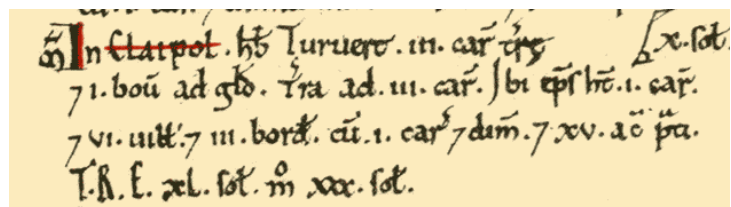 M̃ In Claipol . hb̄ Turuert . iii . car̃ tr̃g x . sol̃.
⁊ i . bou̅ ad gld̅ . Tr̃a ad . iii . car̃ . Ibi ep̃s ht̅ . i . car̃ .
⁊ vi . uill̃ . ⁊ iii . bord̃ . cu̅ . i . car̃ ⁊ dim̃ . ⁊ xv . ac̃ p̃ti .
T . R . E . xl . sol̃ . m̊ xxx . sol̃ .